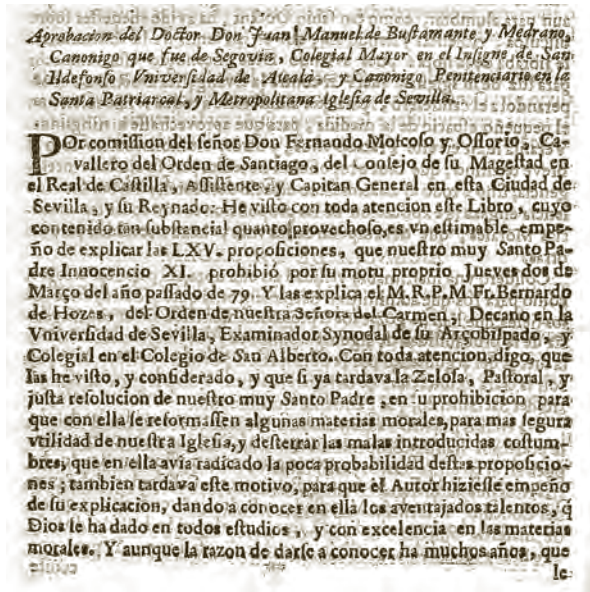 Aprobacion del Doctor Don Juan Manuel de Buſtamante y Medrano,
Canonigo que fue de Segovia, Colegial Mayor en el Inſigne de San
Ildefonſo, Vniverſidad de Alcalà, y Canonigo Penitenciario en la
Santa Patriarcal, y Metropolitana Igleſia de Sevilla.
POr comiſſion del ſeñor Don Fernando Moſcoſo y Oſſorio, Ca-
vallero del Orden de Santiago, del Conſejo de ſu Mageſtad en
el Real de Caſtilla, Aſſiſtente, y Capitan General en eſta Ciudad de
Sevilla, y ſu Reynado: He viſto con toda atencion eſte Libro, cuyo
contenido tan ſubſtancial quanto provechoſo, es vn eſtimable empe-
ño de explicar las LXV. propoſiciones, que nueſtro muy Santo Pa-
dre Innocencio XI. prohibiò por ſu motu proprio Jueves dos de
Março del año paſſado de 79. Y las explica el M.R.P.M Fr. Bernardo
de Hozes, del Orden de nueſtra Señora del Carmen, Decano en la
Vniverſidad de Sevilla, Examinador Synodal de ſu Arçobiſpado, y
Colegial en el Colegio de San Alberto. Con toda atencion, digo, que
las he viſto, y conſiderado, y que ſi ya tardava la Zeloſa, Paſtoral, y
juſta reſolucion de nueſtro muy Santo Padre, en ſu prohibicion para
que con ella ſe reformaſſen algunas materias morales, para mas ſegura
vtilidad de nueſtra Igleſia, y deſterrar las malas introducidas coſtum-
bres, que en ella avia radicado la poca probabilidad deſtas propoſicio-
nes; tambien tardava eſte motivo, para que el Autor hizieſſe empeño
de ſu explicacion, dando a conocer en ella los aventajados talentos, q̃
Dios le ha dado en todos eſtudios, y con excelencia en las materias
morales. Y aunque la razon de darſe a conocer ha muchos años, que
le